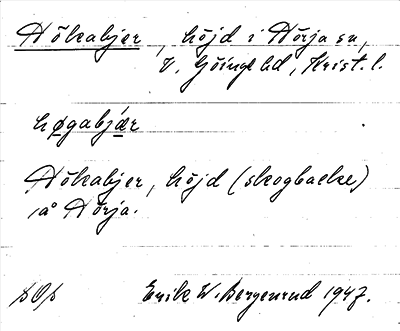 Hökabjer, höjd i Hörja sn,
V. Göinge hd, Krist. l.
høgabjǽr
Hökabjer, höjd (skogbacke)
i å Hörja.
sOs Erik W. Bergenrud 1947.